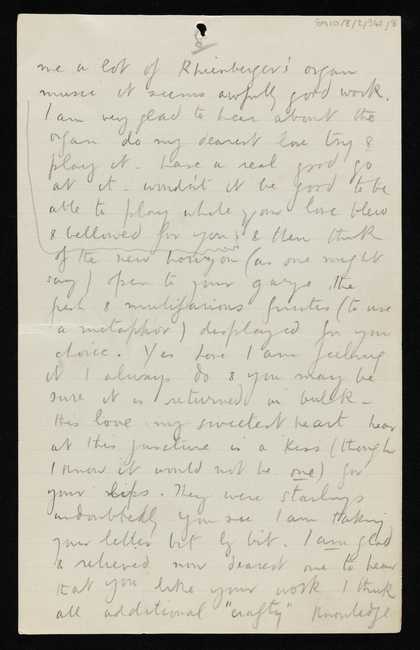 8
me a lot of Rheinberger's organ
music it seems awfully good work.
I am very glad to hear about the
organ do my dearest love try &
play it - have a real good go
at it - wouldn't it be good to be
able to play while your love blew
& bellowed for you; & then think
of the new horizon (as one might
say) open to your gaze. The
fresh & multifarious fruits (to use
a metaphor) displayed for your
choice. Yes love I am feeling
it I always do & you may be
sure it is returned in bulk -
this love my sweetest heart hear
at this juncture is a kiss (though
I know it would not be one) for
your lips. They were starlings
undoubtedly you see I am taking
your letter bit by bit. I am glad
& relieved now dearest one to hear
that you like your work I think
all additional "crafty" knowledge